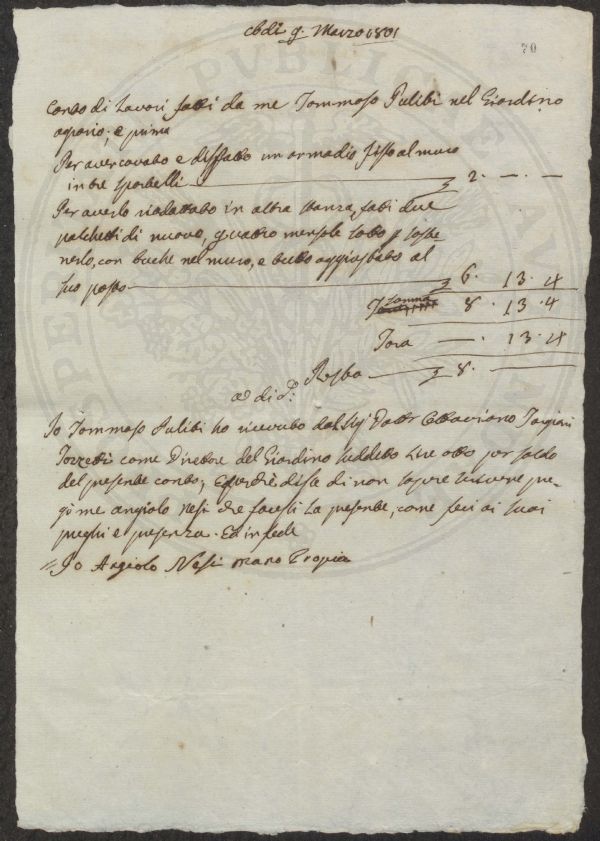 Adi 9. Marzo 1801
70
Conto di Lavori fatti da me Tommaso Pulibi nel Giardino
agrario; e prima
Per aver covato e disfatto un armadio fisso al muro
in tre sportelli £ 2. — . —
Per averlo riadattato in altra stanza, fatti due
palchetti di nuovo, quattro mensole sotto p soste-
nerlo, con buche nel muro, e tutto aggiustato al
suo posto £ 6. 13. 4
Somma 8. 13. 4
Tara — . 13. 4
Resta £ 8.
a di d.º
Io Tommaso Pulibi ho ricevuto dal Sig Dottr Ottaviano Targioni
Tozzetti come Direttore del Giardino suddetto Lire otto per saldo
del presente conto; e perchè disse di non sapere scrivere pre-
gò me angiolo Nesi che facessi la presente, come feci ai suoi
preghi e presenza. Ed in fede
= Io Angiolo Nesi mano Propia
SPER
PVBLICAE